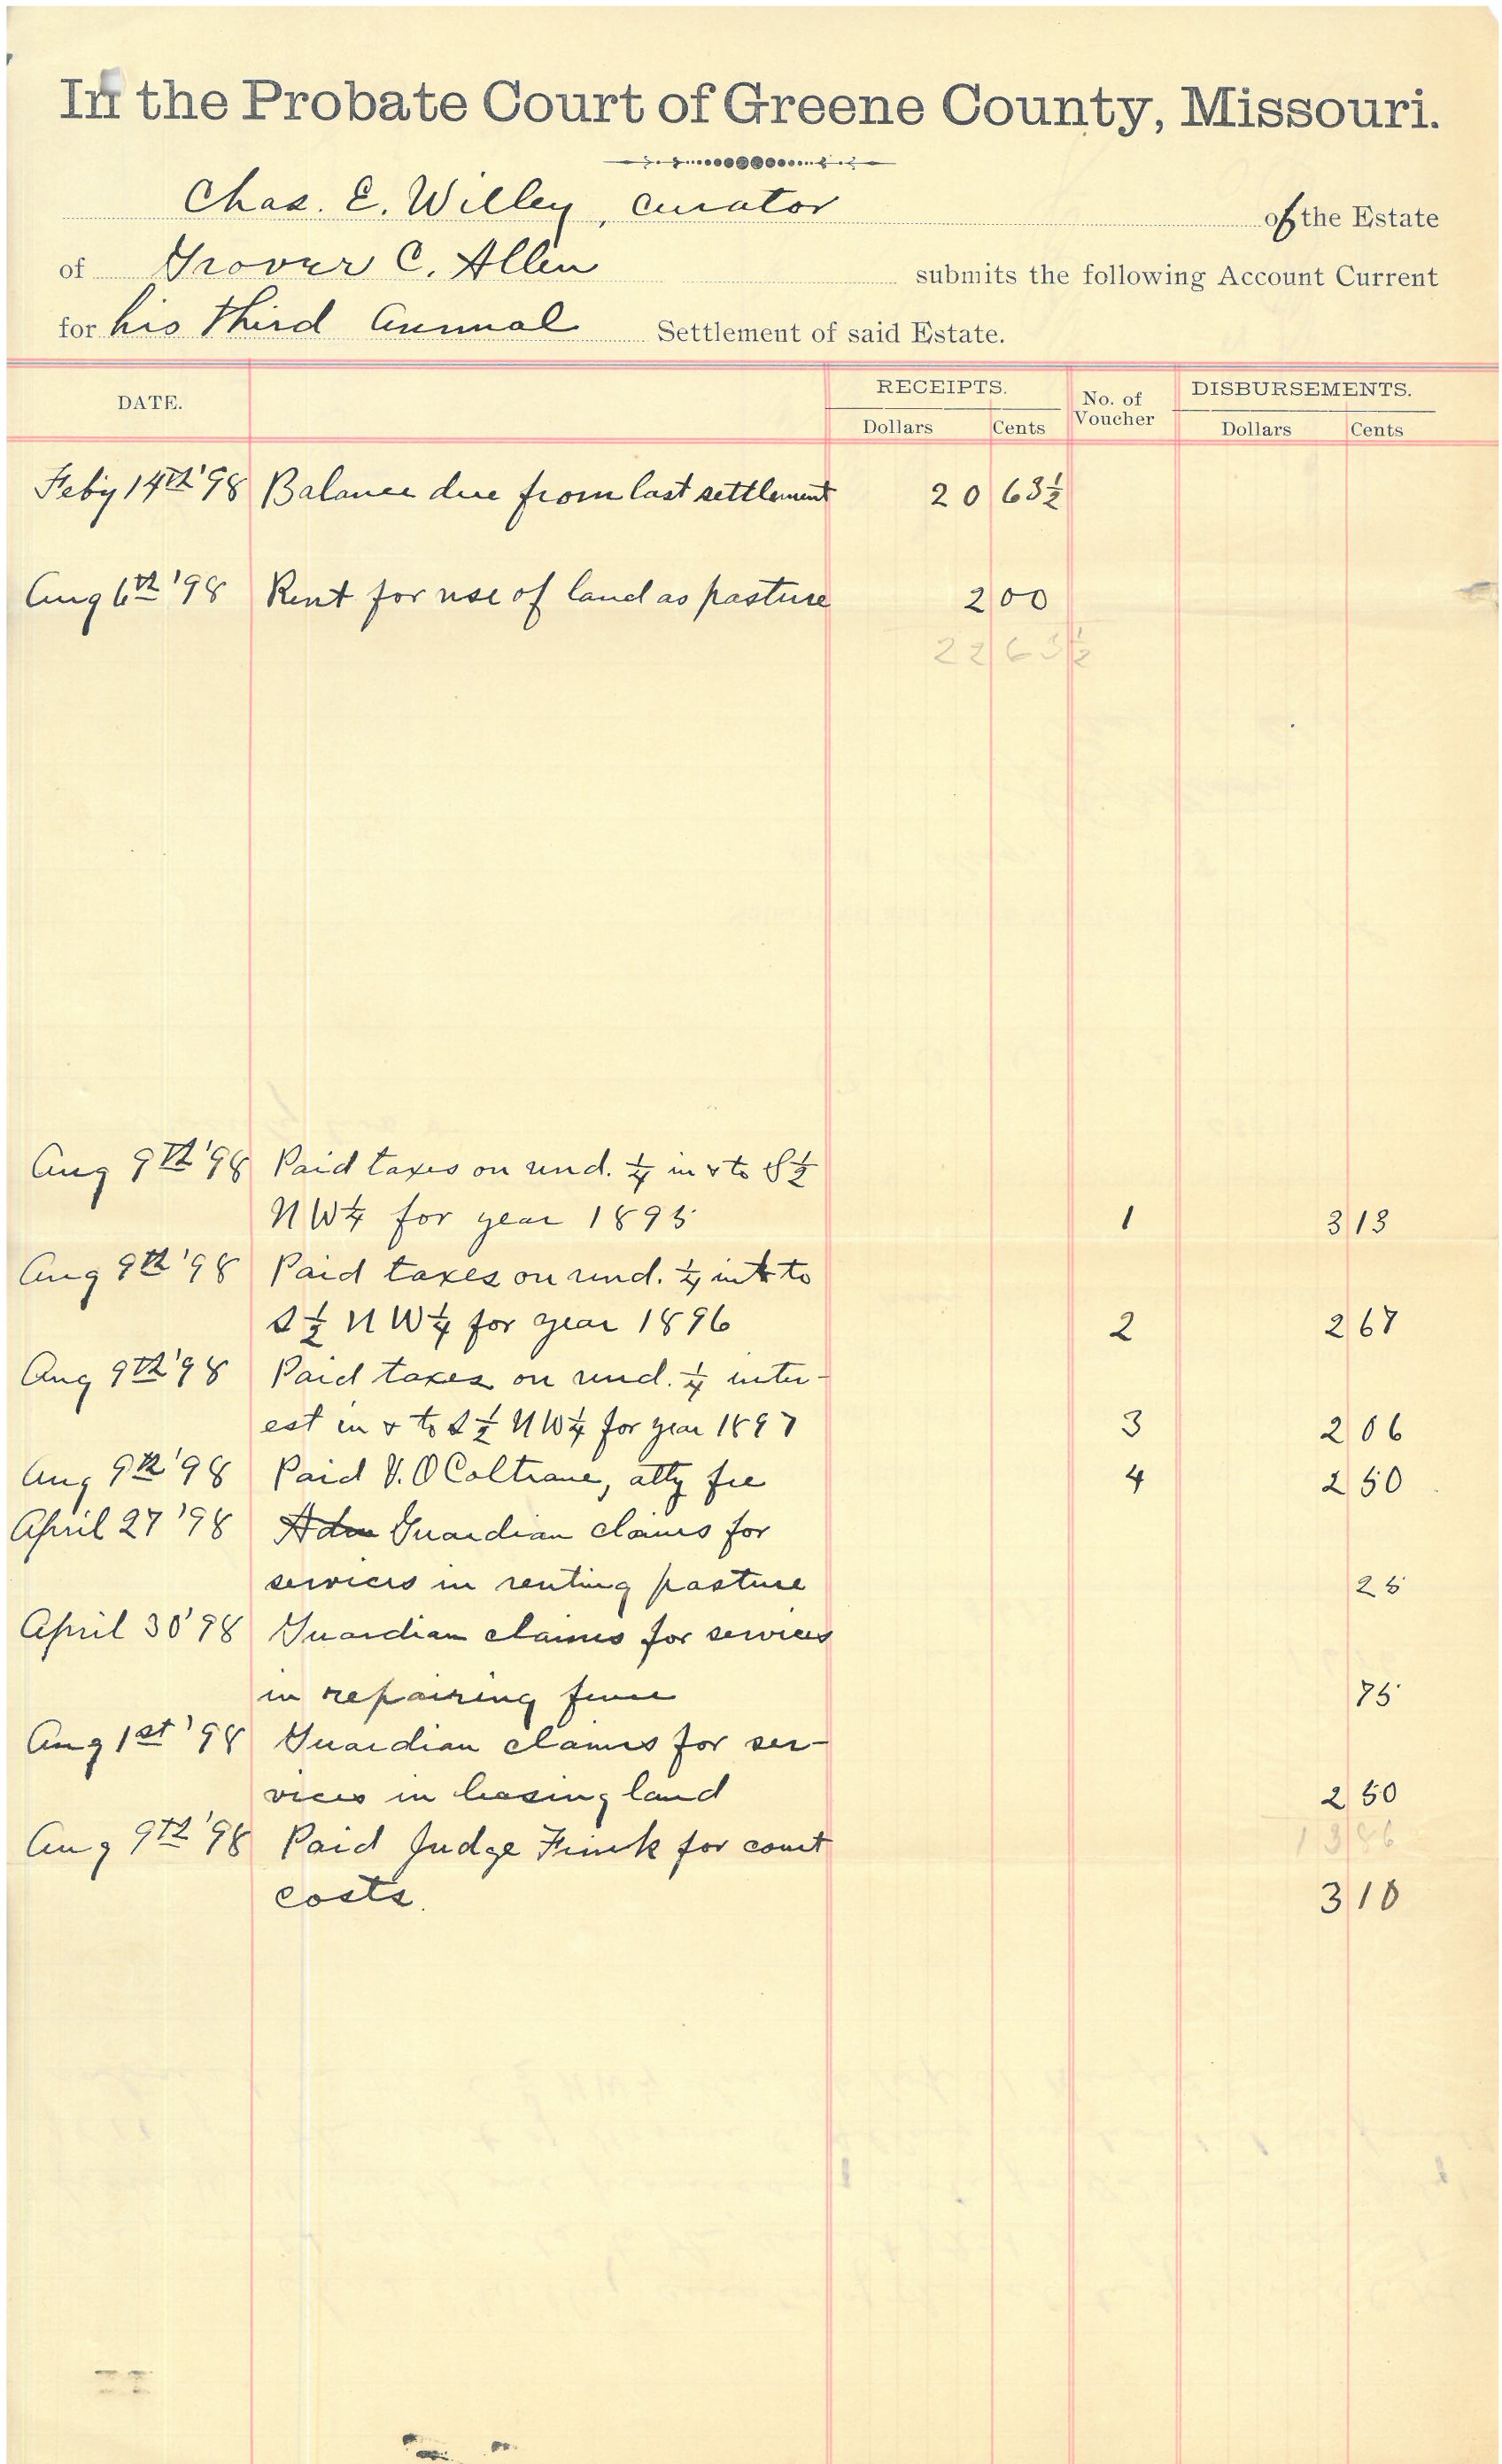 In the Probate Court of Greene County, Missouri.
Chas. E. Willey, curator of the Estate
of Grover C. Allen submits the following Account Current
for his third annual Settlement of said Estate.
DATE. RECEIPTS. No. of Voucher DISBURSEMENTS.
Dollars Cents Dollars Cents
Feby 14th '98 Balance due from last settlement 20 63½
Aug 6th '98 Rent for use of land as pasture 2 00
22 63½
Aug 9th '98 Paid taxes on und. ¼ in & to S½
NW¼ for year 1895 1 3 13
Aug 9th '98 Paid taxes on und. ¼ int to
S½ NW¼ for year 1896 2 2 67
Aug 9th '98 Paid taxes on und. ¼ inter-
est in & to S½ NW¼ for year 1897 3 2 06
Aug 9th '98 Paid V. O Coltrane, atty fee 4 2 50
April 27 '98 Adm Guardian claims for
services in renting pasture 25
April 30 '98 Guardian claims for services
in repairing fence 75
Aug 1st '98 Guardian claims for ser-
vices in leasing land 2 50
13 86
Aug 9th '98 Paid Judge Fink for court
costs. 3 10